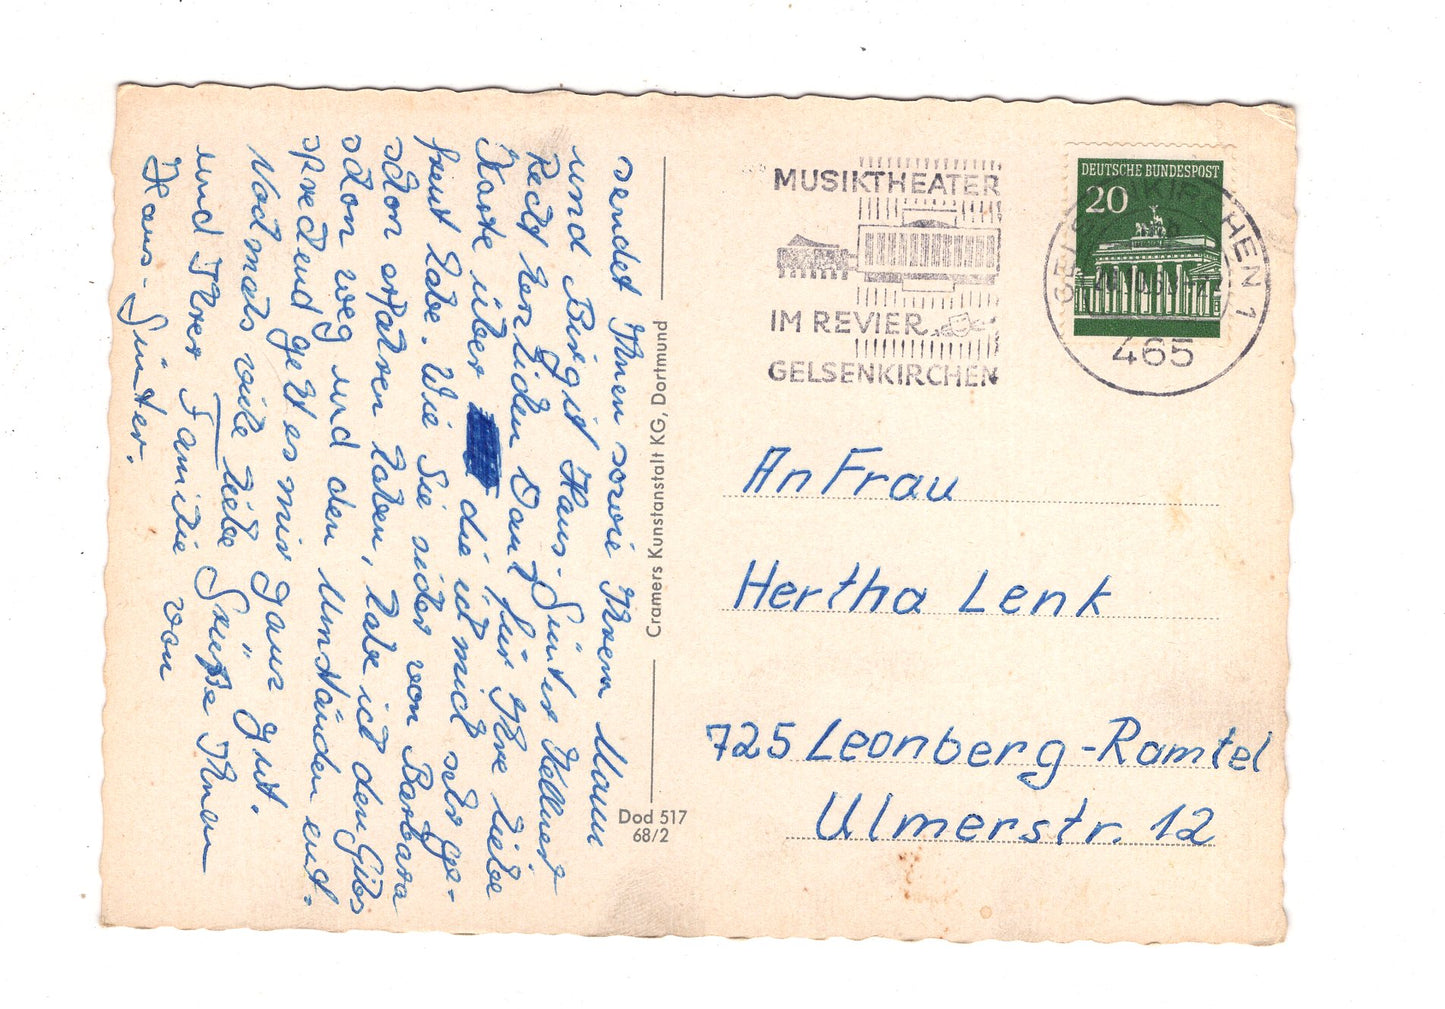 sendet Ihnen sowie Ihrem Mann
und Birgit Hans-Günter Kellnert
Recht herzlichen Dank für Ihre liebe
Karte über die ich mich sehr ge-
freut habe. Wie Sie sicher von Barbara
schon erfahren haben, habe ich den Gibs
schon weg und den Umständen ent.
sprechend geht es mir ganz gut.
Nochmals viele liebe Grüße Ihnen
und Ihrer Familie von
Hans-Günter.
Cramers Kunstanstalt KG, Dortmund
Dod 517
68/2
MUSIKTHEATER
IM REVIER
GELSENKIRCHEN
DEUTSCHE BUNDESPOST
20
GELSENKIRCHEN 1
465
An Frau
Hertha Lenk
725 Leonberg-Ramtel
Ulmerstr. 12